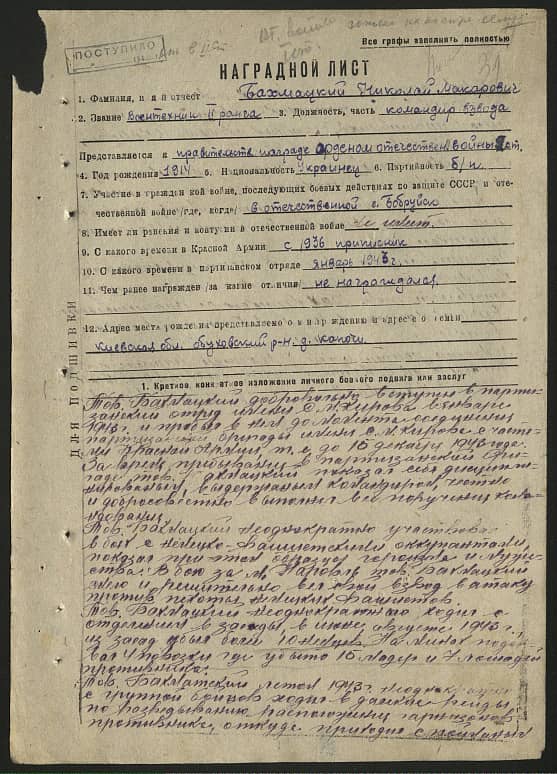 ПОСТУПИЛО
Все графы заполнить полностью
31
НАГРАДНОЙ ЛИСТ
1. Фамилия, имя и отчест Бахмацкий Николай Макарович
2. Звание Воентехник II ранга 3. Должность, часть командир взвода
Представляется к правительств награде орденом отечествен. войны ст.
4. Год рождения 1914 5. Национальность Украинец 6. Партийность б/п
7. Участие в гражданской войне, последующих боевых действиях по защите СССР и оте-
чественной войне /где, когда/ в отечественной г. Бобруйск
8. Имеет ли ранения и контузии в отечественной войне Не имеет.
9. С какого времени в Красной Армии с 1936 приписник
10. С какого времени в партизанском отряде январь 1943 г.
11. Чем ранее награжден /за какие отличия/ не награждался
12. Адрес места рождения представляемого к награждению и адрес его семьи
Киевская обл. Обуховский р-н. д.
Для подшивки
1. Краткое, конкретное изложение личного боевого подвига или заслуг
Тов. Бахмацкий добровольно вступил в парти-
занский отряд имени С.М. Кирова в январе
1943 г. и пробыл в нем до момента соединения
партизанской бригады имени С.М. Кирова с частя-
ми Красной Армии, т.е. до 16 декабря 1943 года.
За время пребывания в партизанской бри-
гаде тов. Бахмацкий показал себя дисципли-
нированным, выдержанным командиром, честно
и добросовестно выполнял все поручения кома-
ндования.
Тов. Бахмацкий неоднократно участвовал
в боях с немецко-фашистскими оккупантами,
показал при этом образцы геройства и муже-
ства. В бою за м. тов. Бахмацкий
смело и решительно вел свой взвод в атаку
против пехоты немецких фашистов.
Тов. Бахмацкий неоднократно ходил с
отделением в засады, в июне, августе 1943 г.,
из засад убил 10 немцев. На минах подор-
вал повозки где убыто 15 и 7 лошадей
противника.
Тов. Бахмацкий летом 1943 г. неоднократно
с группой бойцов ходил в далекие рейды
по разведыванию расположения гарнизонов
противника, откуда приходил с